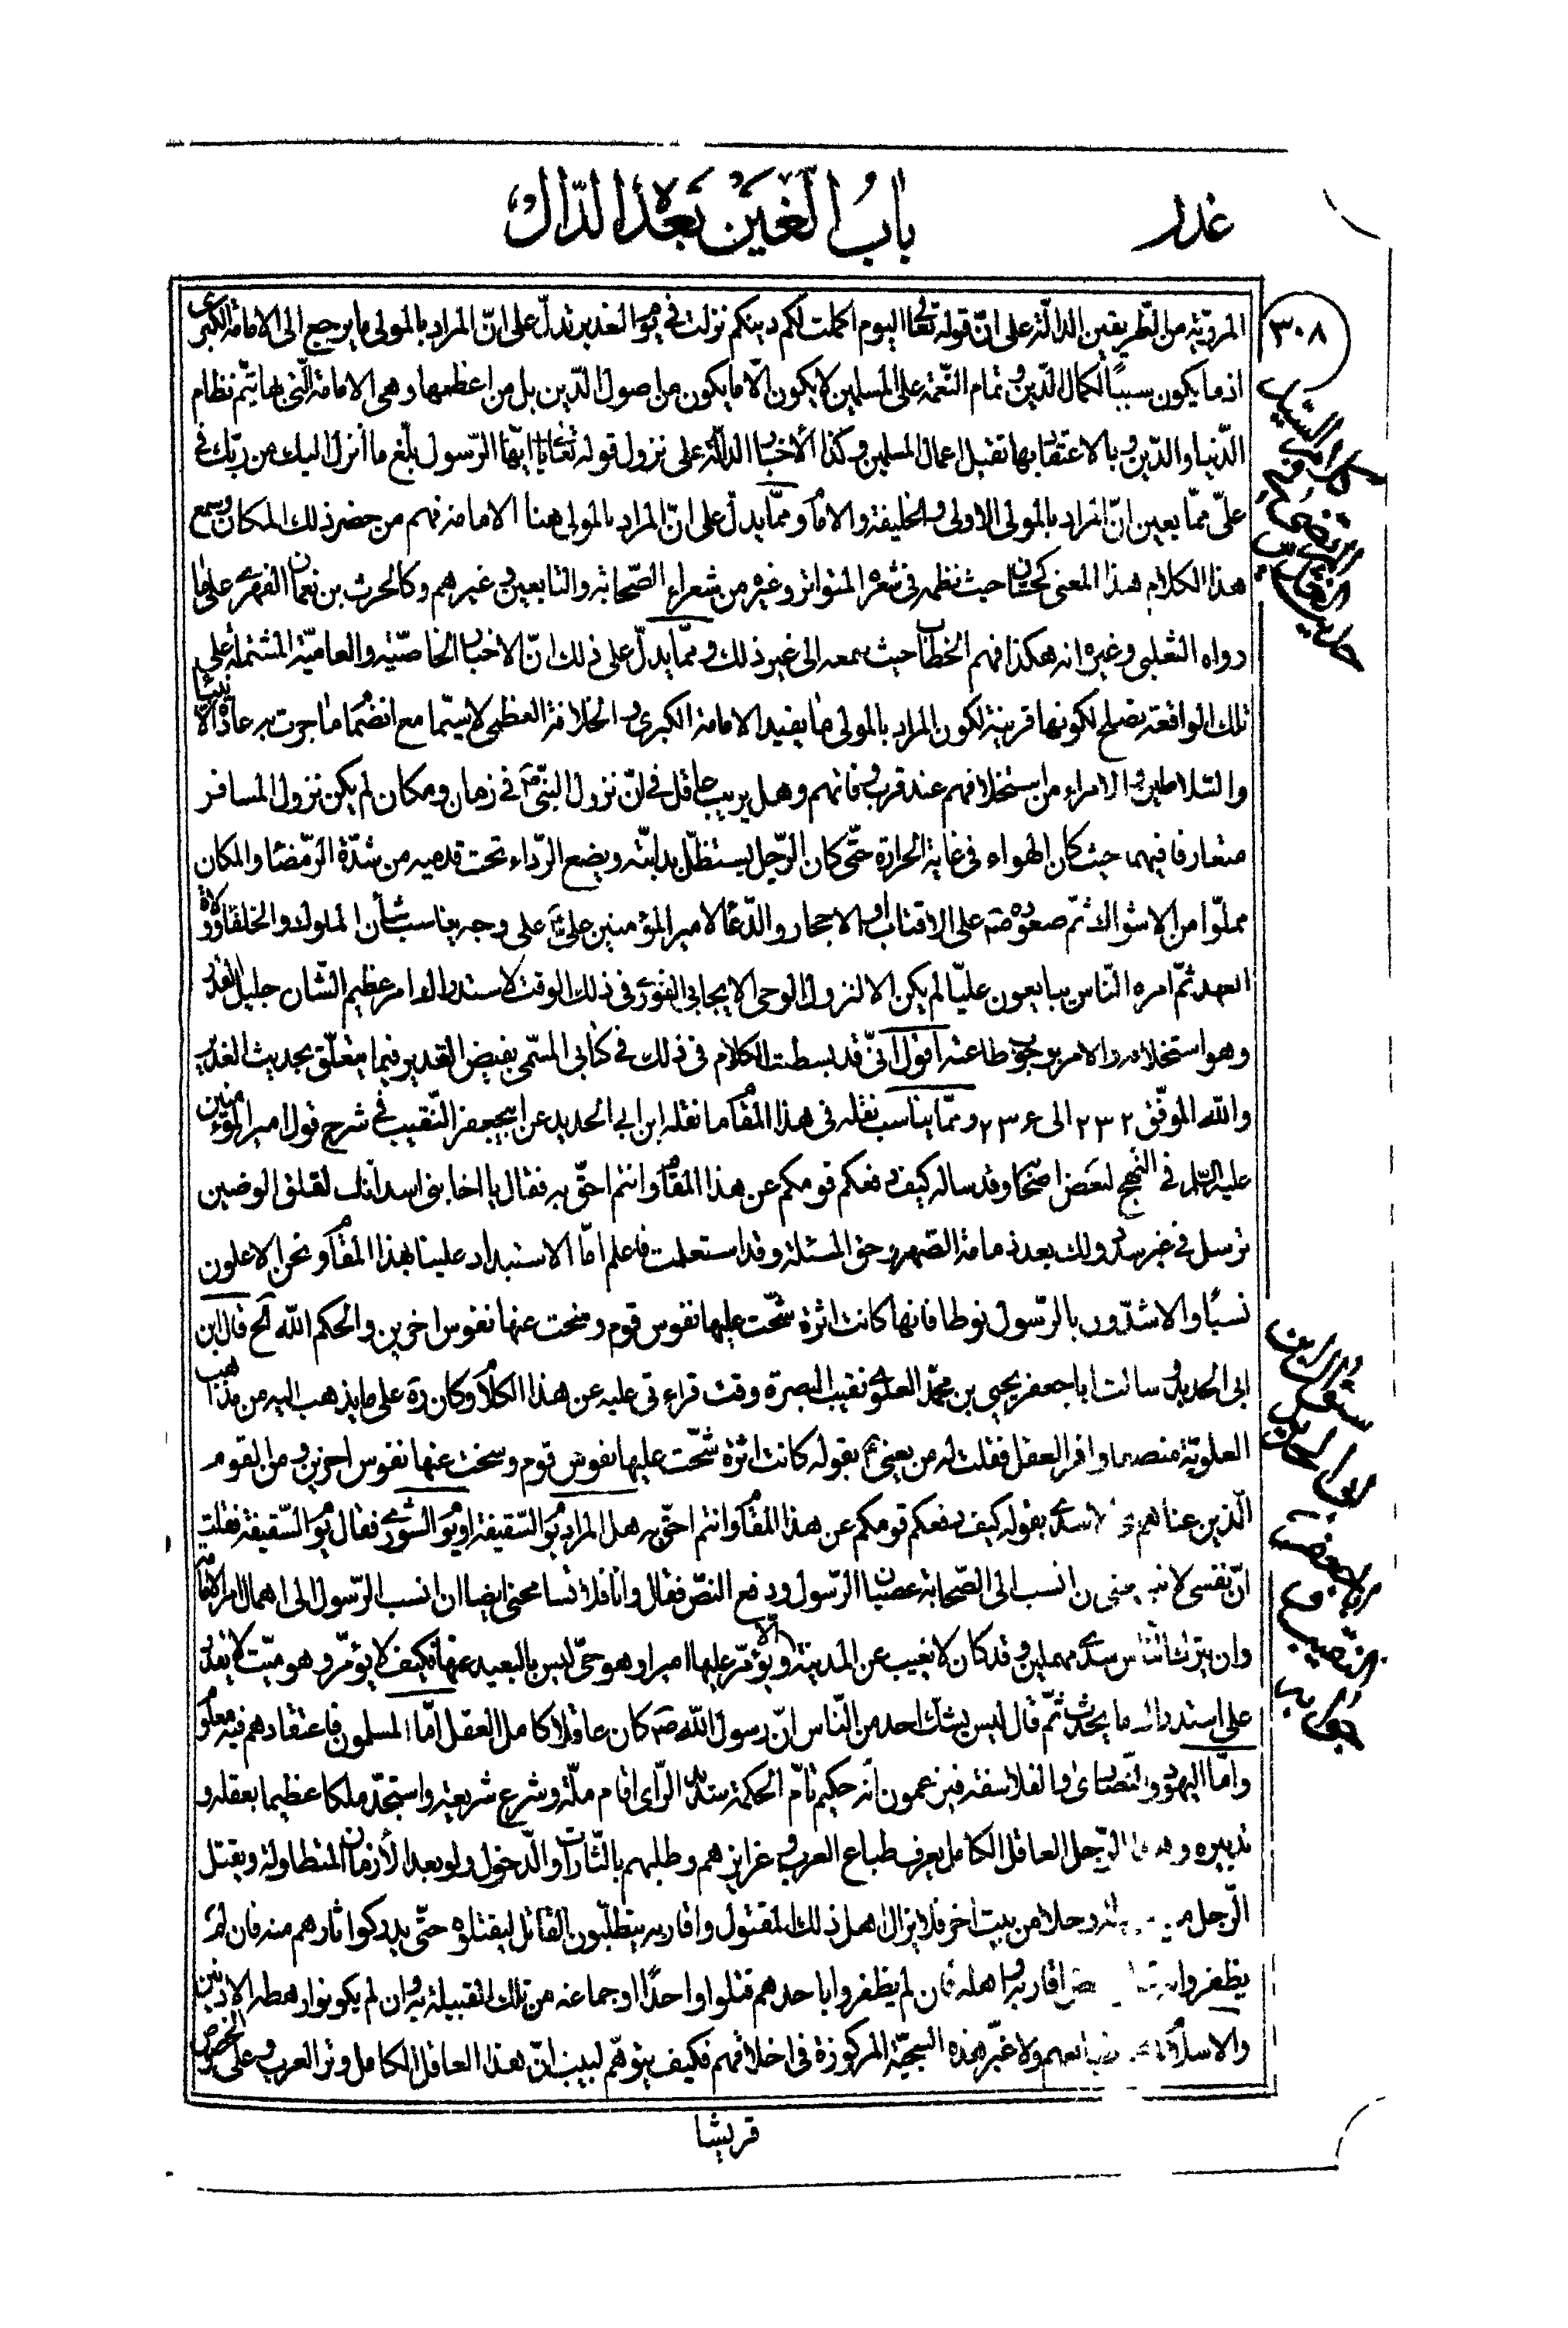 غدر
باب الغين بعد الدال
٣٠٨
المرويّة من الطريقين الدالّة على انّ قوله تعالى اليوم اكملت لكم دينكم نزلت في يوم الغدير تدلّ على انّ المراد بالمولى ما يرجع الى الامامة الكبرى
اذ ما يكون سببًا لكمال الدّين وتمام النّعمة على المسلمين لا يكون الّا ما يكون من اصول الدّين بل من اعظمها وهى الامامة الّتى بها يتمّ نظام
الدّنيا والدّين وبالاعتقاد بها تقبل اعمال المسلمين وكذا الأخبار الدالّة على نزول قوله تعالى يا ايّها الرّسول بلّغ ما أنزل اليك من ربّك في
علىّ ممّا يعين انّ المراد بالمولى الاولى والخليفة والامام وممّا يدل على انّ المراد بالمولى هنا الامامة فهم من حضر ذلك المكان وسمع
هذا الكلام هذا المعنى كحسّان حيث نظمه في شعره المتواتر وغيره من شعراء الصّحابة والتابعين وغيرهم وكالحرث بن نعمان الفهرى على ما
رواه الثعلبى وغيره انه هكذا فهم الخطاب حيث سمعه الى غير ذلك وممّا يدلّ على ذلك انّ الاخبار الخاصّيّة والعاميّة المشتملة على
تلك الواقعة تصلح لكونها قرينة لكون المراد بالمولى ما يفيد الامامة الكبرى والخلافة العظمى لا سيّما مع انضمام ما جرت به عادة الانبياء
والسّلاطين والامراء من استخلافهم عند قرب وفاتهم وهل يريب عاقل في انّ نزول النبىّ ص في زمان ومكان لم يكن نزول المسافر
متعارفا فيهما حيث كان الهواء في غاية الحرارة حتّى كان الرّجل يستظلّ بدابّته ويضع الرّداء تحت قدميه من شدّة الرّمضاء والمكان
مملوّا من الاشواك ثمّ صعوده ص على الاقتاب والاحجار والدّعاء لامير المؤمنين علىّ ع على وجه يناسب شأن الملوك والخلفاء وولاة
العهد ثمّ امره النّاس يبايعون عليّا لم يكن الا لنزول الوحى الايجابى الفورى في ذلك الوقت لاستدراك امر عظيم الشّان جليل القدر
وهو استخلافه والامر بوجوب طاعته اقول انّى قد بسطت الكلام في ذلك في كتابى المسمّى بفيض القدير فيما يتعلّق بحديث الغدير
والله الموفّق ٢٣٢ الى ٢٣٤ وممّا يناسب نقله في هذا المقام ما نقله ابن ابى الحديد عن ابى جعفر النّقيب في شرح قول امير المؤمنين
عليه السّلام في النّهج لبعض اصحابه وقد ساله كيف دفعكم قومكم عن هذا المقام وانتم احقّ به فقال يا اخا بنى اسد انّك لقلق الوضين
ترسل في غير سدد ولك بعد ذمامة الصّهر وحق المسئلة وقد استعلمت فاعلم امّا الاستبداد علينا بهذا المقام ونحن الاعلون
نسبًا والاشدّون بالرّسول نوطا فانها كانت اثرة شحّت عليها نفوس قوم وسخت عنها نفوس اخرين والحكم الله الخ قال ابن
ابى الحديد وسالت ابا جعفر يحيى بن محمّد العلوى نقيب البصرة وقت قراءتى عليه عن هذا الكلام وكان ره على ما يذهب اليه من مذاهب
العلويّة منصفا وافر العقل فقلت له من يعنى ع بقوله كانت اثرة شحّت عليها نفوس قوم وسخت عنها نفوس اخرين ومن القوم
الّذين عناهم الاسدى بقوله كيف دفعكم قومكم عن هذا المقام وانتم احق به هل المراد يوم السّقيفة او يوم الشّورى فقال يوم السّقيفة فقلت
انّ نفسى لا انسب الى الصّحابة عصيان الرّسول ودفع النصّ فقال وانا فلا تسامحنى ايضا ان انسب الرّسول الى اهمال امر الامامة
وان يترك النّاس سدى مهملين وقد كان لا يغيب عن المدينة الّا ويؤمّر عليها اميرا وهو حىّ ليس بالبعيد عنها فكيف لا يؤمّر وهو ميّت لا يقدر
على استدراك ما يحدث ثمّ قال ليس يشك احد من النّاس انّ رسول الله ص كان عاقلا كامل العقل امّا المسلمون فاعتقادهم فيه معلوم
وامّا اليهود والنّصارى والفلاسفة فيزعمون انه حكيم تامّ الحكمة سديد الرّاى اقام ملّة وشرع شريعة واستجدّ ملكا عظيما بعقله و
تدبيره وهذا الرّجل العاقل الكامل يعرف طباع العرب وغرايزهم وطلبهم بالثّارات والذّحول ولو بعد الأزمان المتطاولة ويقتل
الرّجل رجلا من بيت اخر فلا يزال اهل ذلك المقتول واقاربه يتطلّبون القاتل ليقتلوه حتّى يدركوا ثارهم منه فان لم
يظفروا اقاربه واهله فان لم يظفروا باحدهم قتلوا واحدًا او جماعة من تلك القبيلة به وان لم يكونوا رهطه الادنين
والاسلام طبائعهم ولا غيّر هذه السجيّة المركوزة في اخلاقهم فكيف يتوهّم لبيب انّ هذا العاقل الكامل وتر العرب وعلى الخصوص
قريشا